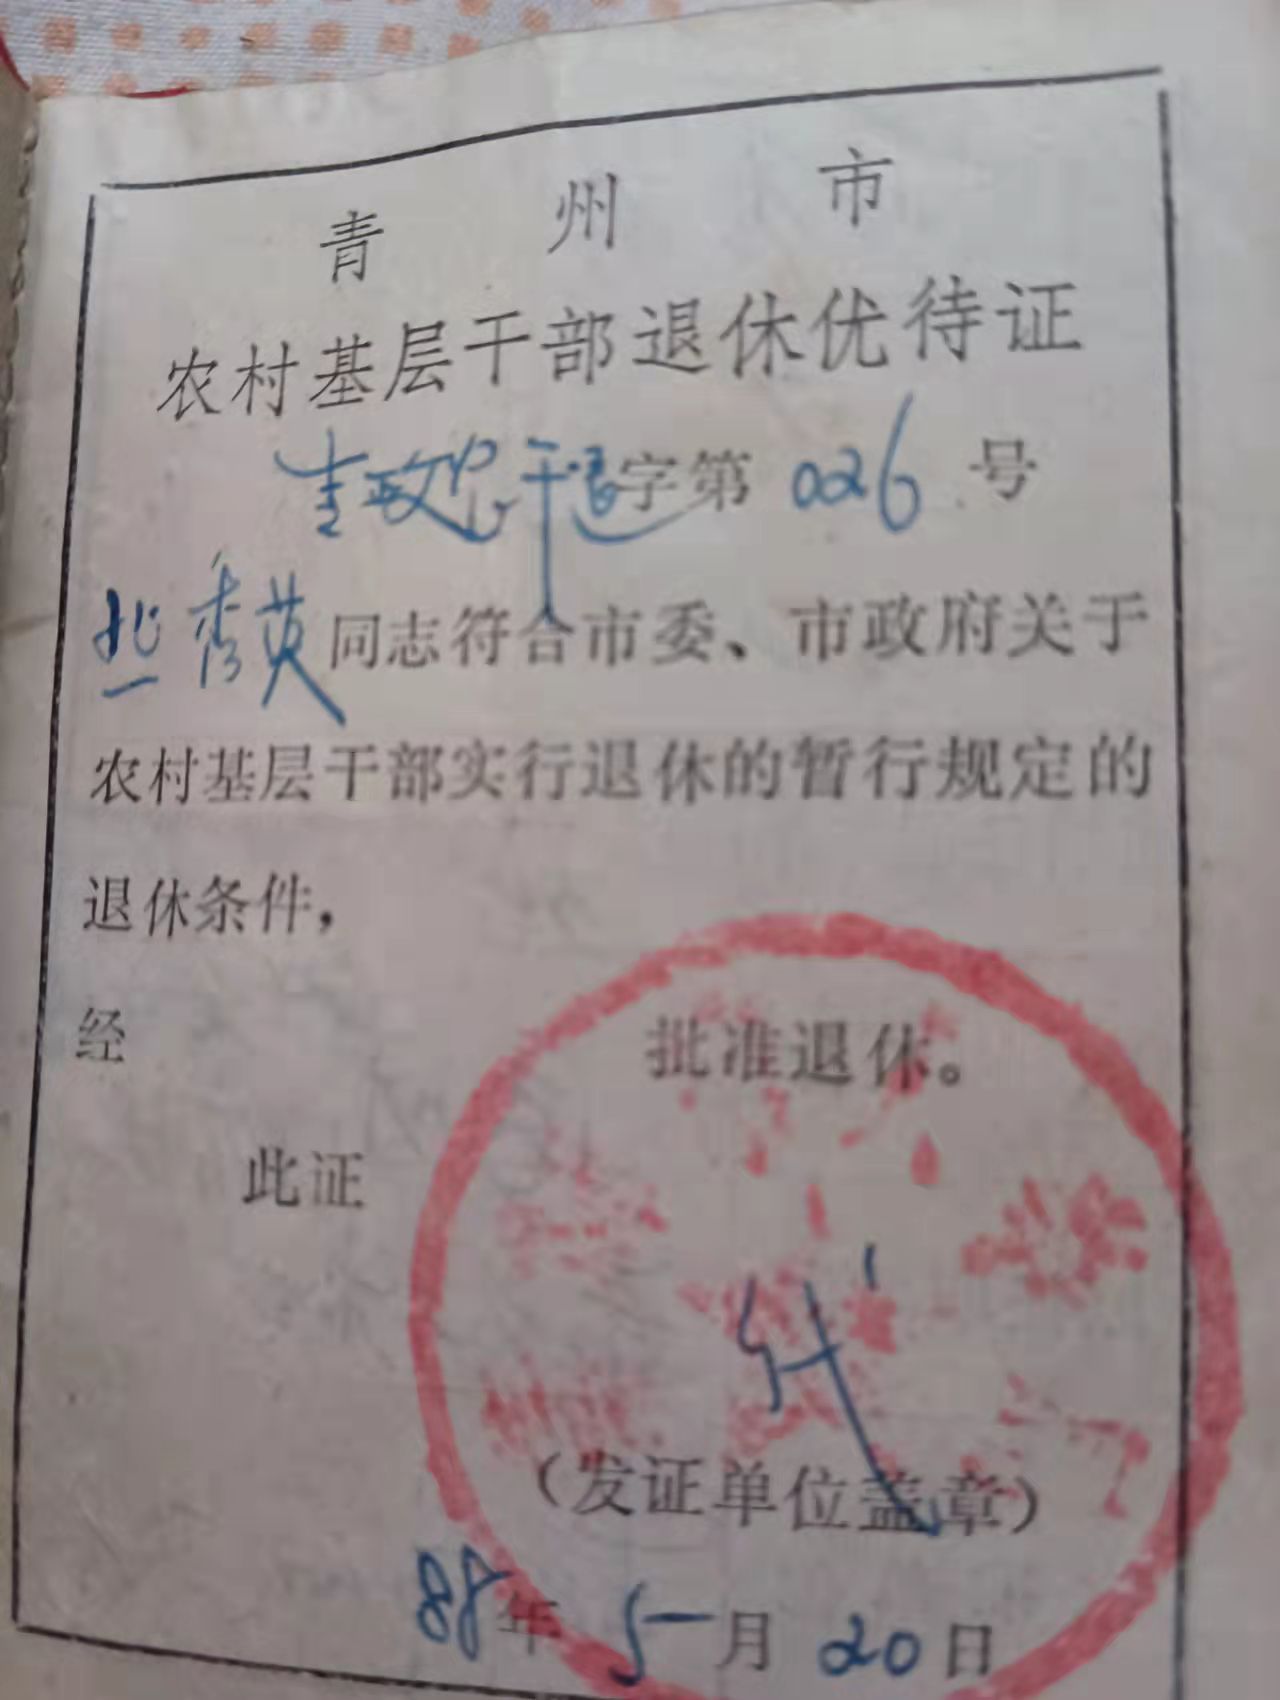 青州市
农村基层干部退休优待证
字第 026 号
秀英同志符合市委、市政府关于
农村基层干部实行退休的暂行规定的
退休条件，
经 批准退休。
此证
（发证单位盖章）
88年5月20日